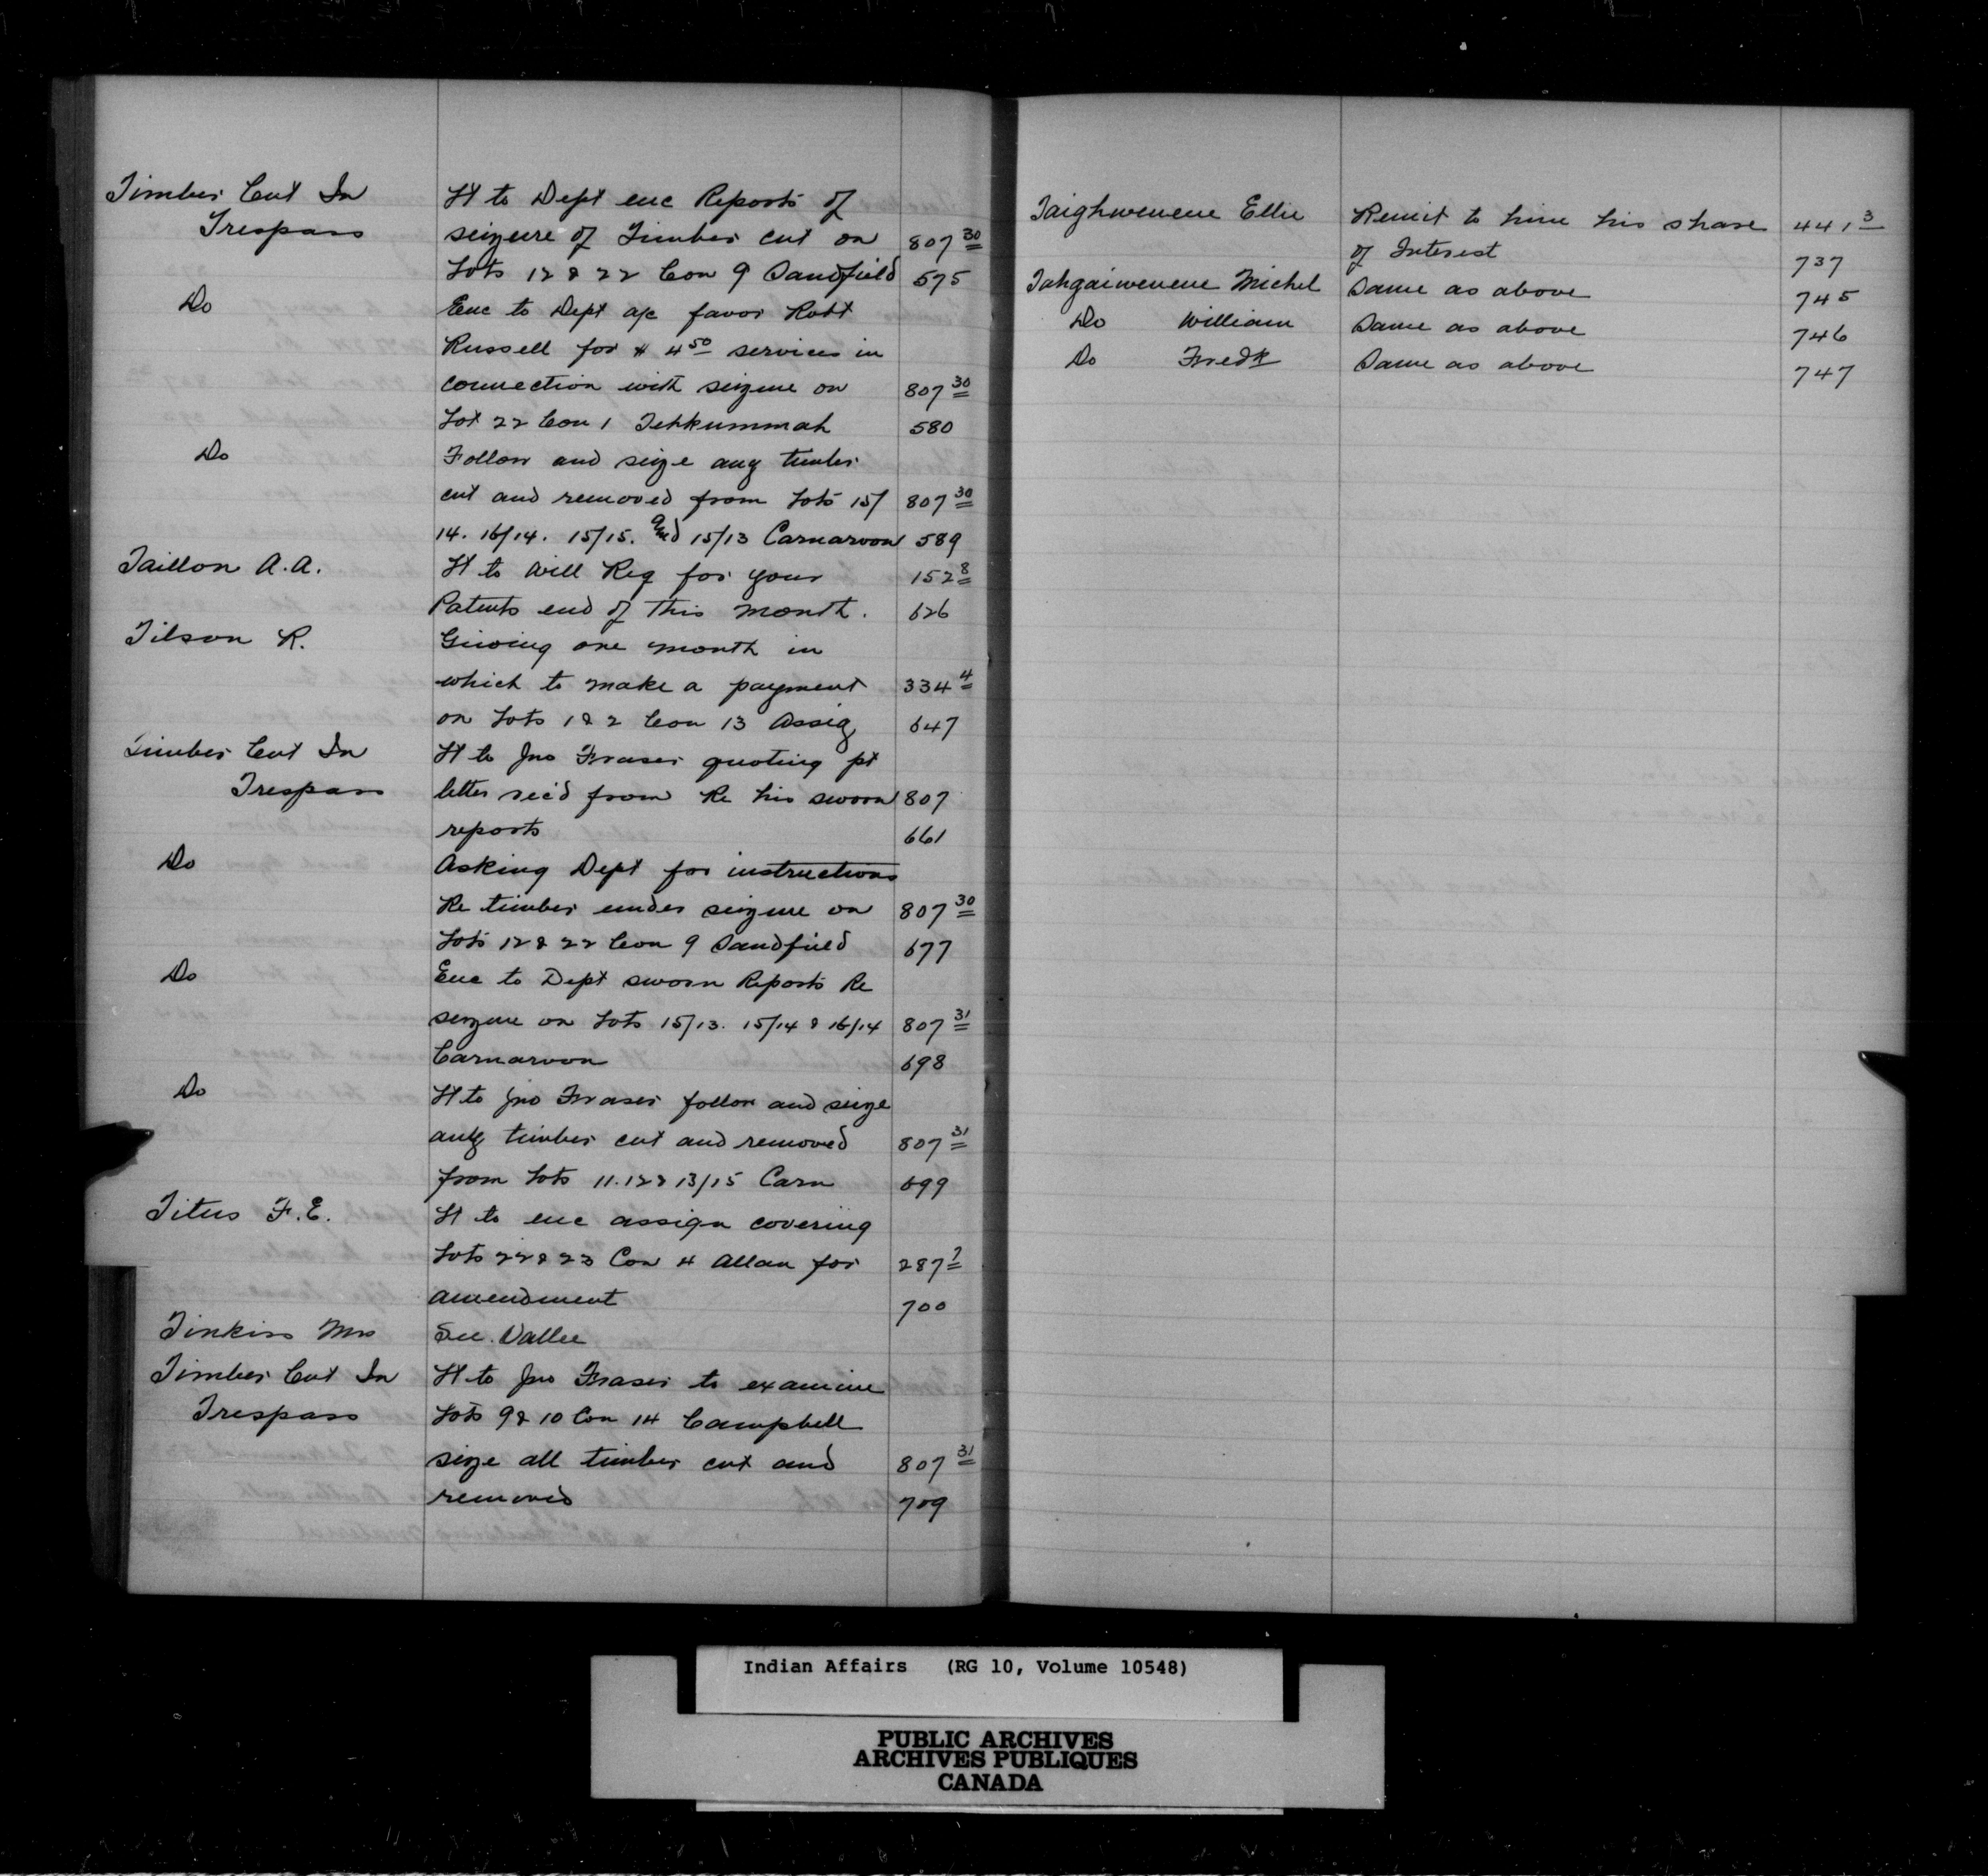 Timber Cut In Lt to Dept enc Reports of
Trespass seizure of Timber cut on 807 30
Lots 12 & 22 Con 9 Sandfield 575
Do Enc to Dept a/c favor Robt
Russell for $ 4 50 services in
connection with seizure on 807 30
Lot 22 Con 1 Tehkummah 580
Do Follow and seize any timber
cut and removed from Lots 15/ 807 30
14. 16/14. 15/15. and 15/13 Carnarvon 589
Taillon A.A. Lt to will Reg for your 152 8
Patents end of this month. 626
Tilson R. Giving one month in
which to make a payment 334 4
on Lots 1 & 2 Con 13 Assig 647
Timber Cut In Lt to Jno Fraser quoting pt
Trespass letter rec'd from Re his sworn 807
reports 661
Do Asking Dept for instructions
Re timber under seizure on 807 30
Lots 12 & 22 Con 9 Sandfield 677
Do Enc to Dept sworn Reports Re
seizure on Lots 15/13. 15/14 & 16/14 807 31
Carnarvon 698
Do Lt to Jno Fraser follow and seize
any timber cut and removed 807 31
from Lots 11. 12 & 13/15 Carn 699
Titus F.E. Lt to enc assign covering
Lots 22 & 23 Con 4 Allan for 287
amendment 700
Tinkiss Mrs See. Vallee
Timber Cut In Lt to Jno Fraser to examine
Trespass Lots 9 & 10 Con 14 Campbell
seize all timber cut and 807 31
removed 709
Taighwenene Ellie Remit to him his share 441 3
of Interest 737
Tahgaiwenene Michel Same as above 745
Do William Same as above 746
Do Fredk Same as above 747
Indian Affairs (RG 10, Volume 10548)
PUBLIC ARCHIVES
ARCHIVES PUBLIQUES
CANADA